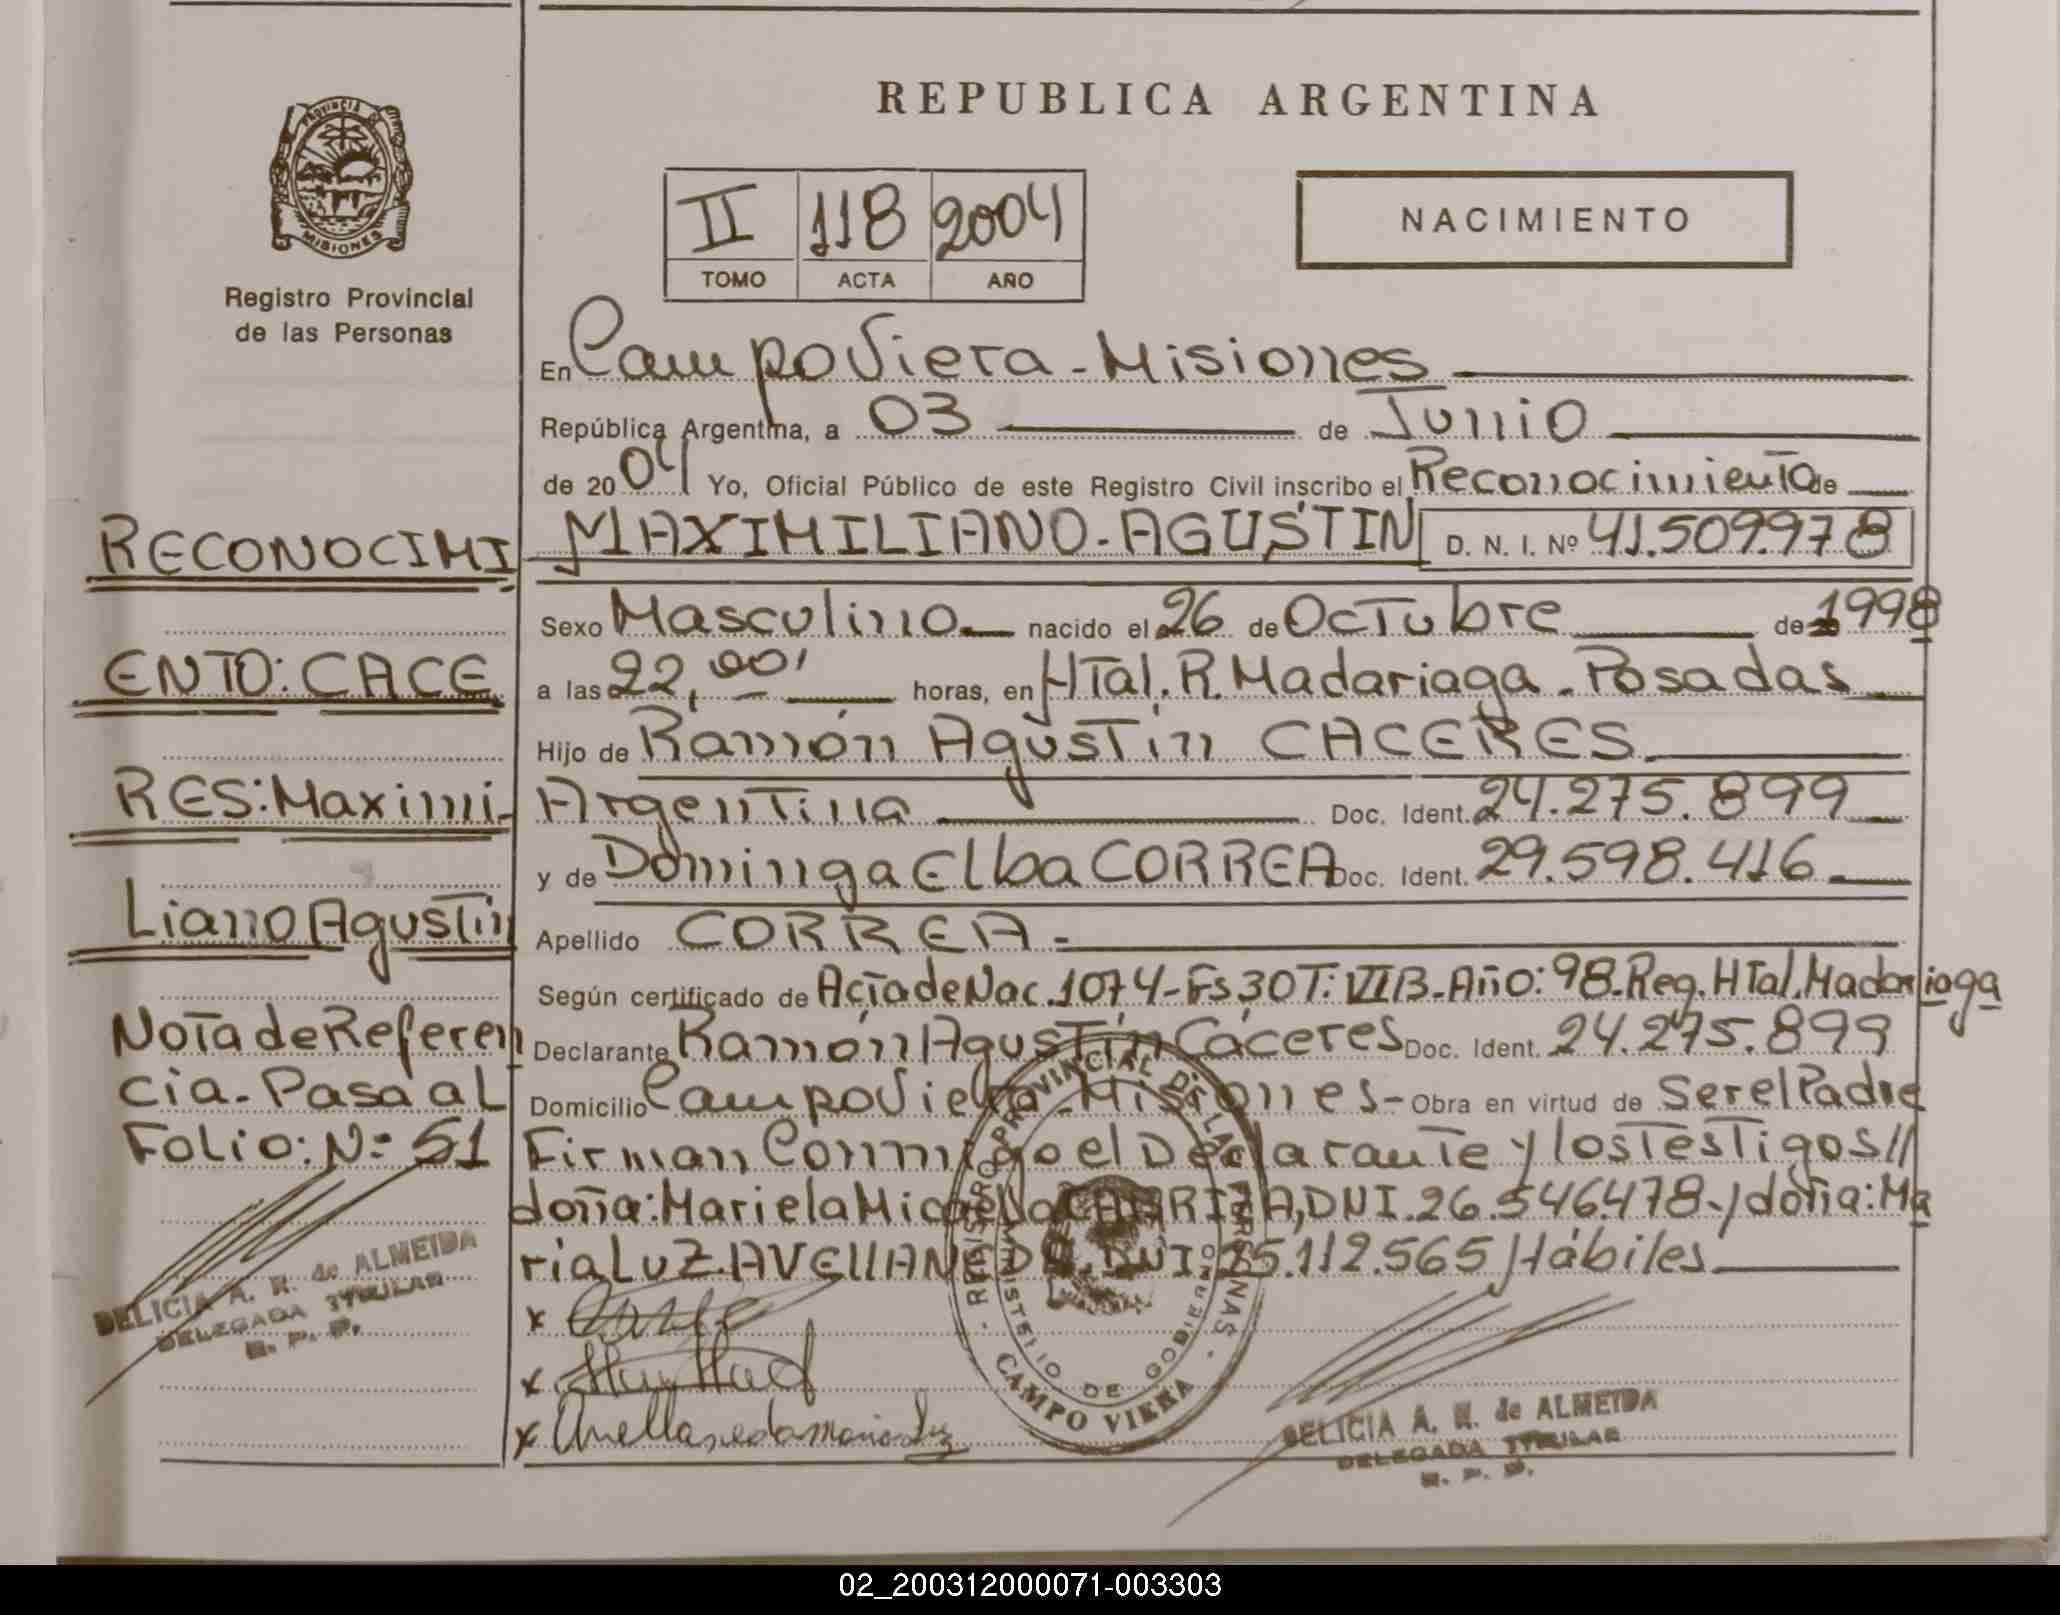 REPUBLICA ARGENTINA
PROVINCIA DE
MISIONES
Registro Provincial
de las Personas
II 118 2004
TOMO ACTA AÑO
NACIMIENTO
En Campo Viera - Misiones
República Argentina, a 03 de Junio
de 2004 Yo, Oficial Público de este Registro Civil inscribo el Reconocimiento de
MAXIMILIANO - AGUSTIN D. N. I. Nº 41.509.978
Sexo Masculino nacido el 26 de Octubre de 1998
a las 22,00' horas, en Htal. R. Madariaga - Posadas
Hijo de Ramón Agustín CACERES
Argentina Doc. Ident. 24.275.899
y de Dominga Elba CORREA Doc. Ident. 29.598.416
Apellido CORREA -
Según certificado de Acta de Nac. 1074 - Fs 30 T: VII B - Año: 98 - Reg. Htal. Madariaga
Declarante Ramón Agustín Cáceres Doc. Ident. 24.275.899
Domicilio Campo Viera - Misiones - Obra en virtud de Ser el Padre
Firman Conmigo el Declarante y los Testigos //
doña: Mariela Micaela CABRIZA, DNI. 26.546.478 - / doña: Ma
ria Luz AVELLANEDA, DNI. 25.112.565 / Hábiles
RECONOCIMI
ENTO: CACE
RES: Maximi-
Liano Agustin
Nota de Referen
cia - Pasa al
Folio: Nº 51
DELICIA A. N. de ALMEIDA
DELEGADA TITULAR
R. P. P.
x
x
x Avellaneda Maria Luz
REGISTRO PROVINCIAL DE LAS PERSONAS
MINISTERIO DE GOBIERNO
CAMPO VIERA
DELICIA A. N. de ALMEIDA
DELEGADA TITULAR
R. P. P.
02_200312000071-003303